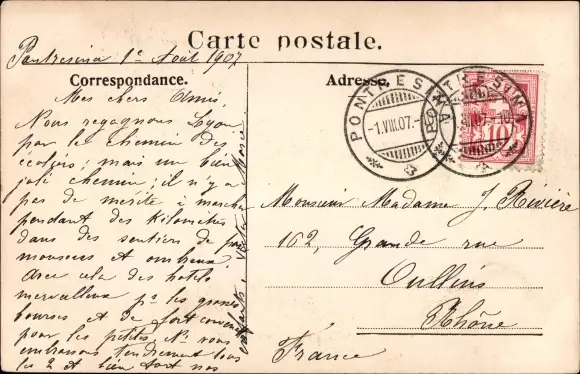 Carte postale.
Pontresina 1er Août 1907
Correspondance.
Mes chers Amis,
Nous regagnons Lyon
par le chemin des
écoliers ; mais un bien
joli chemin ; il n'y a
pas de mérite à marcher
pendant des kilomètres
dans des sentiers de
mousses et ombreux
Avec cela des hôtels
merveilleux pr les grosses
bourses et de fort convenables
pour les petites. Ns vous
embrassons tendrement tous
les 2 et bien fort nos
enfants.
Adresse.
PONTRESINA
-1.VIII.07.-
PONTRESINA
VIII.07.-10
10
Monsieur Madame J. Rivière
162, Grande rue
Oullins
Rhône
France